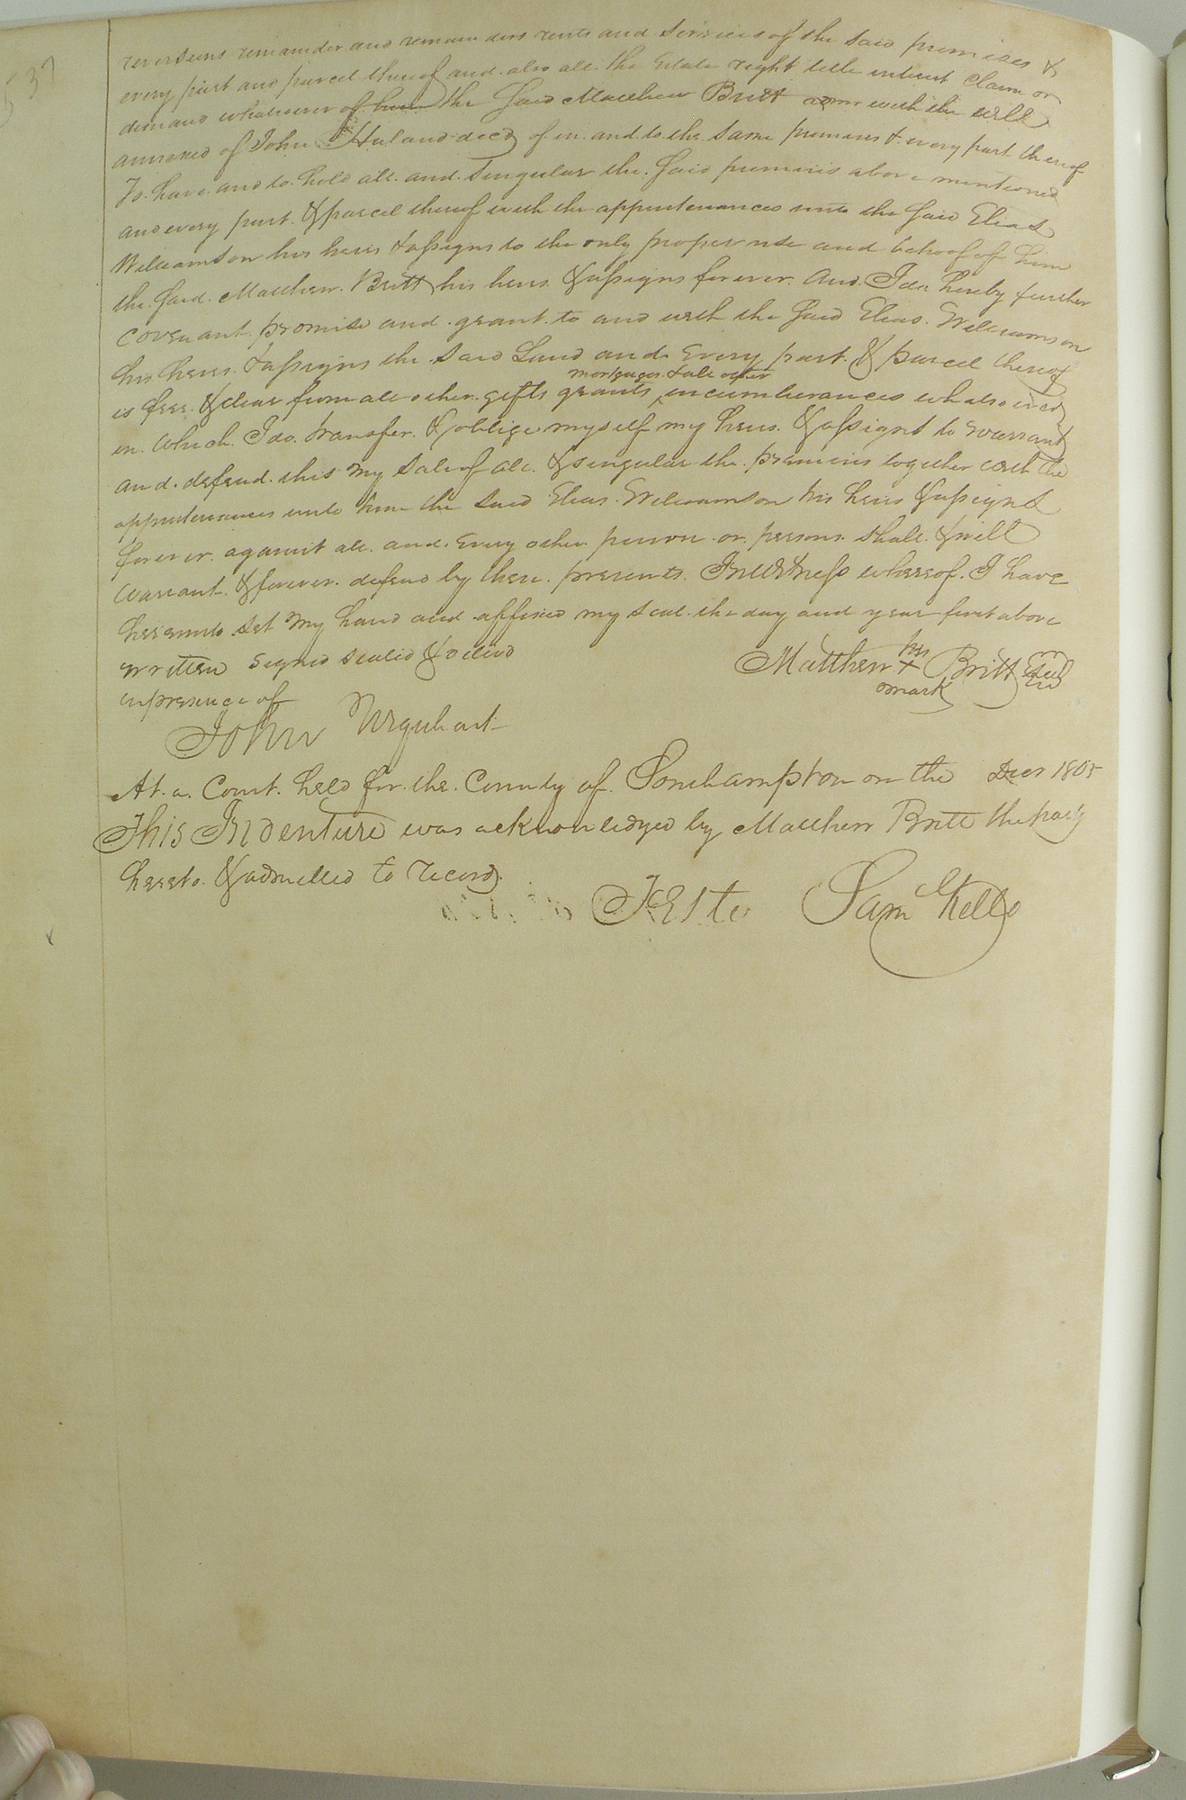 537
reversions remainder and remainders rents and services of the said premises &
every part and parcel thereof and also all the Estate right title interest Claim or
demand whatsoever of him the said Matthew Britt admr with the will
annexed of John Holand decd of in and to the same premises & every part thereof
To have and to hold all and singular the said premises above mentioned
and every part & parcel thereof with the appurtenances unto the said Elias
Williamson his heirs & assigns to the only proper use and behoof of him
the said Matthew Britt his heirs & assigns forever And I do hereby further
Covenant promise and grant to and with the said Elias Williamson
his heirs & assigns the said Land and Every part & parcel thereof
mortgages & all other
is free & clear from all other gifts grants incumberances whatsoever
in which I do transfer & oblige myself my heirs & assigns to warrant
and defend this my sale of all & singular the premises together with the
appurtenances unto him the said Elias Williamson his heirs & assigns
forever against all and every other person or persons shall & will
warrant & forever defend by these presents In Witness whereof I have
hereunto set my hand and affixed my seal the day and year first above
written Signed sealed & delivd
in presence of
Matthew his + mark Britt Seal
John Urquhart
At a Court held for the County of Southampton on the Decr 1805
This Indenture was acknowledged by Matthew Britt the party
hereto & admitted to record
Teste Sam Kello